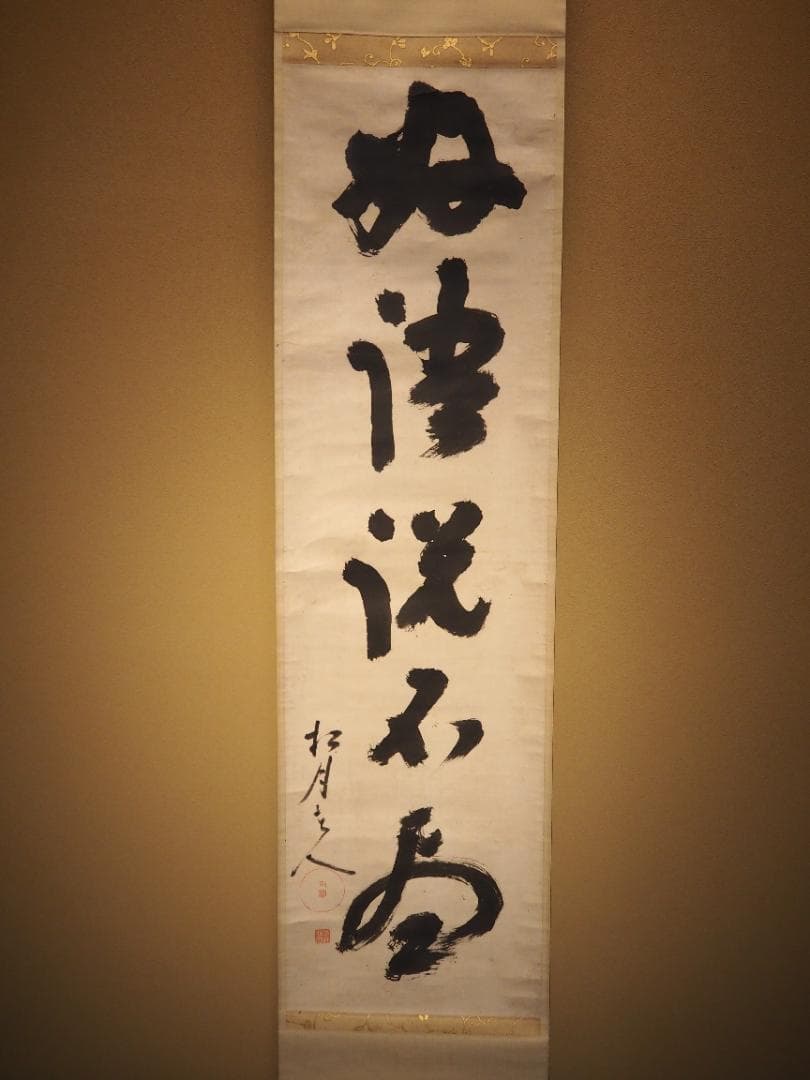 好語説不尽
松月老人